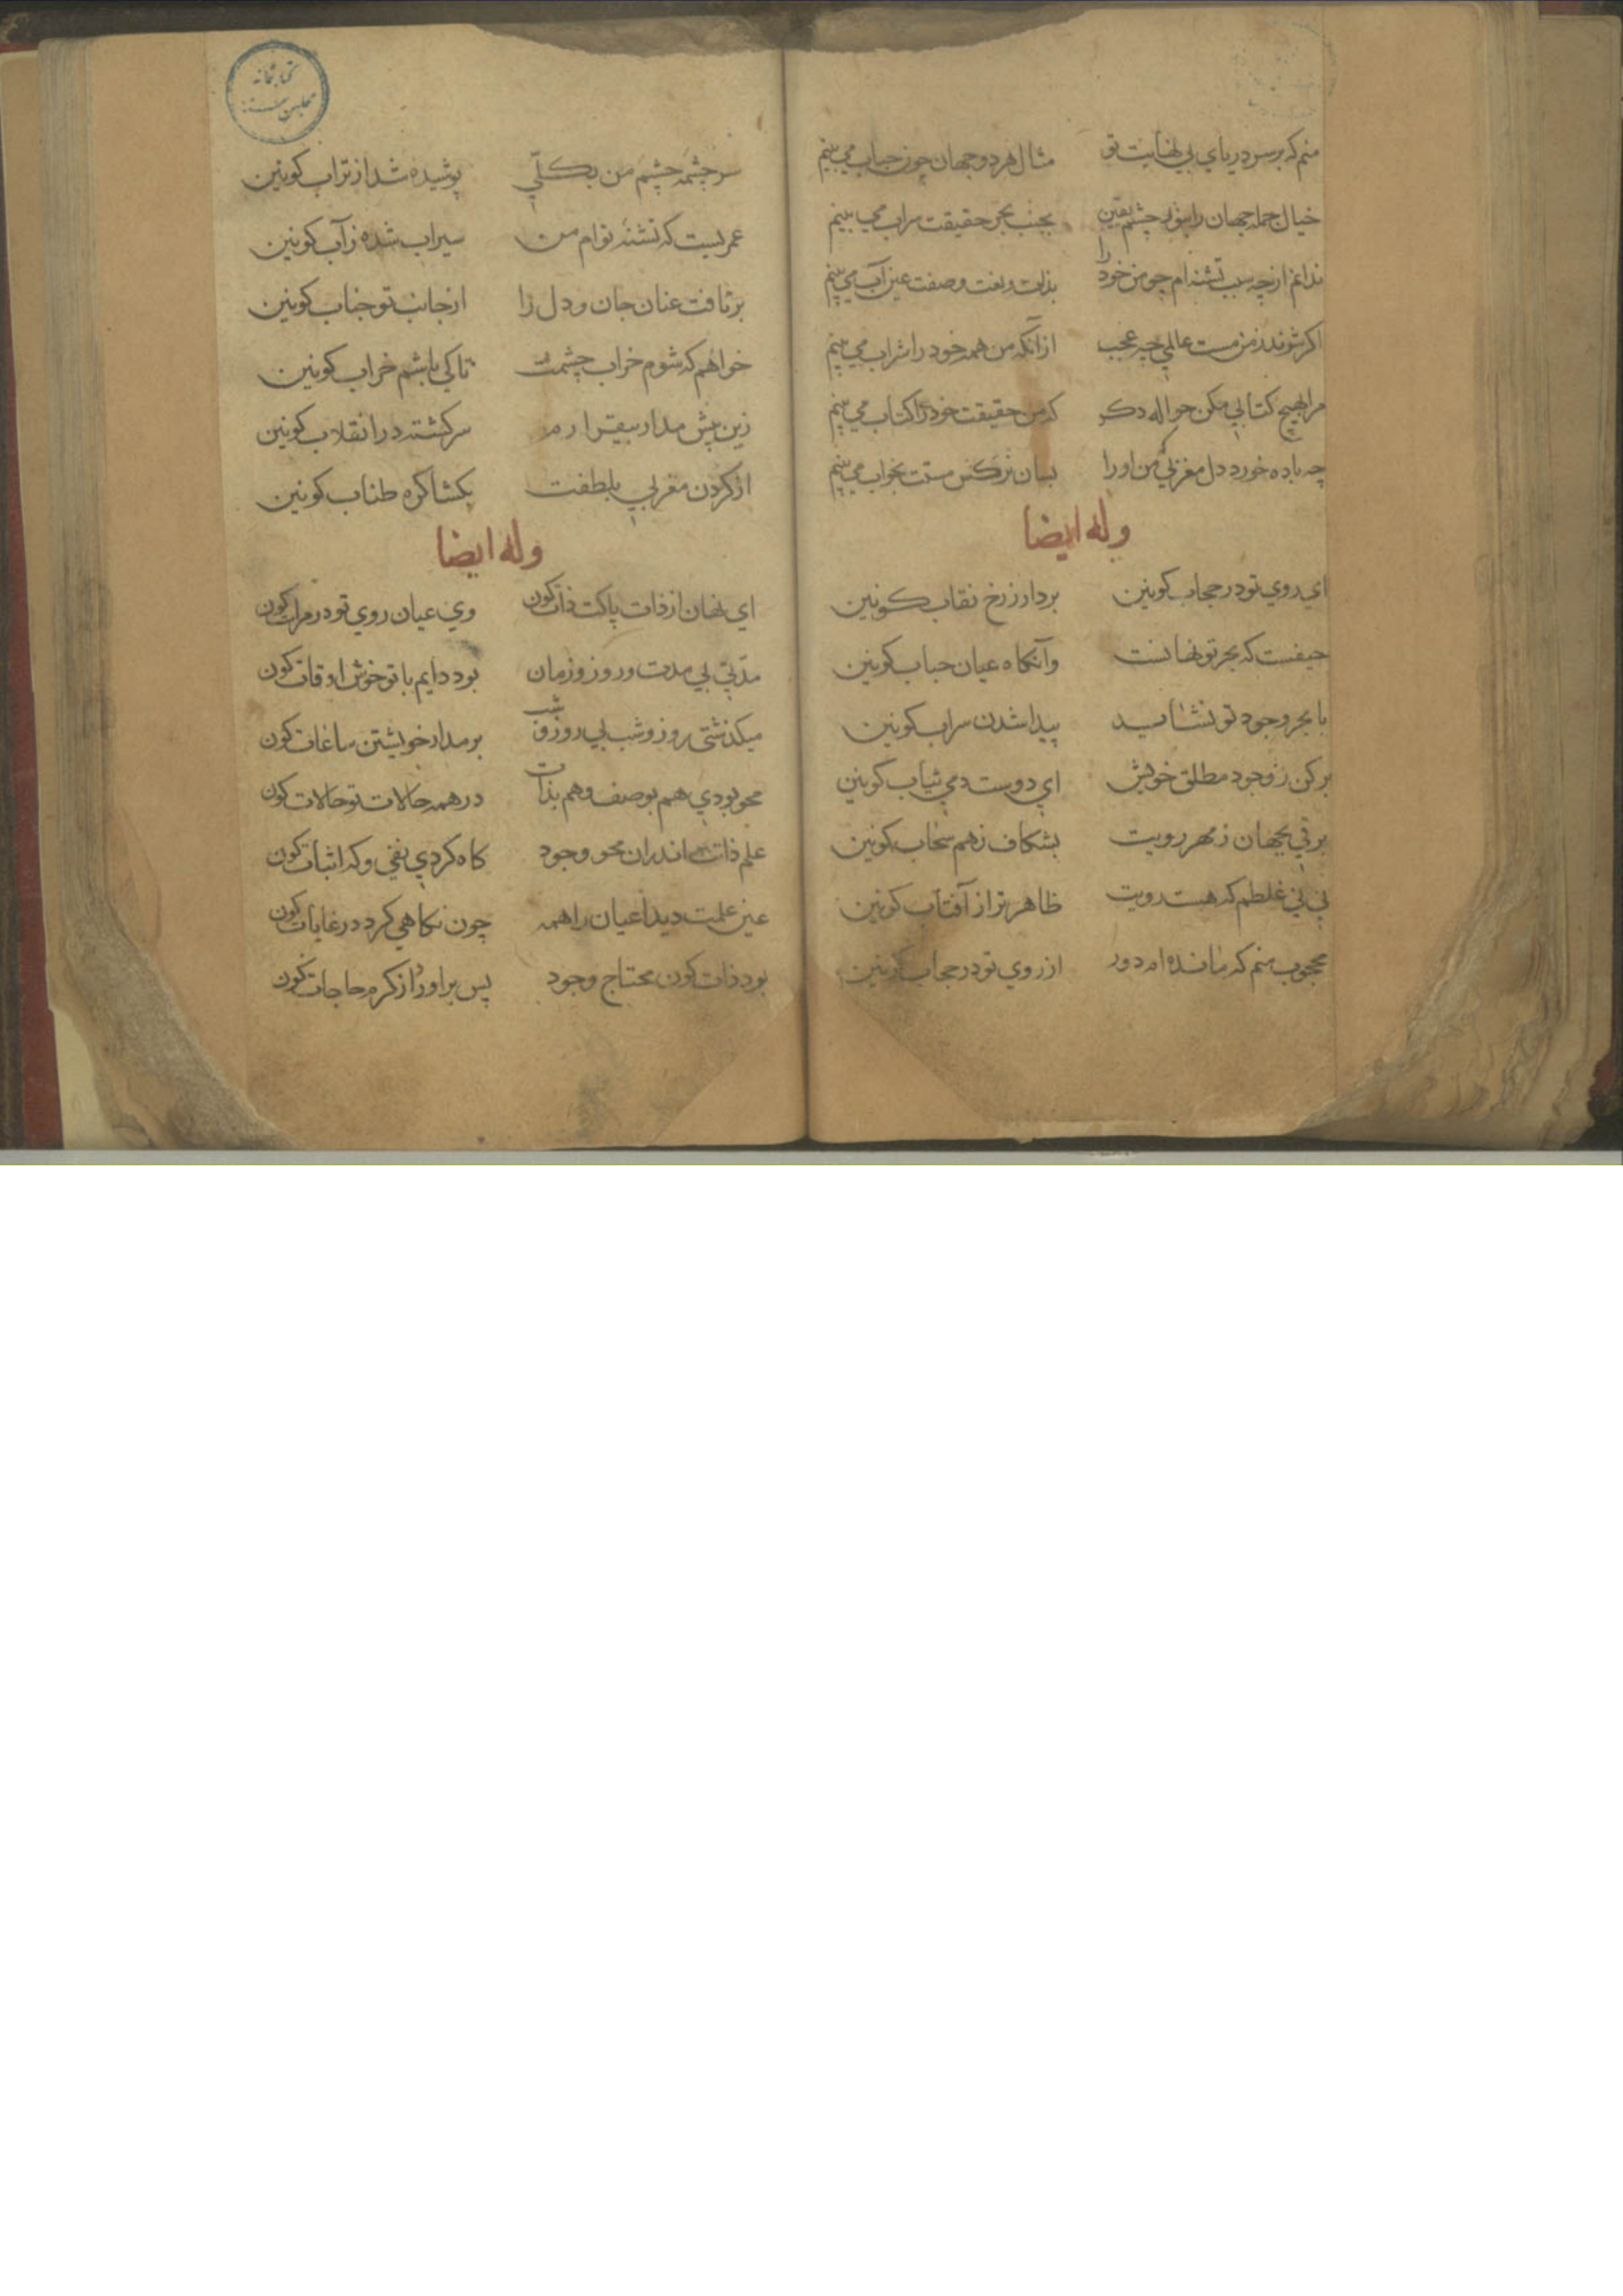 منم که بر سر دریای بی نهایت تو مثال هر دو جهان چون حباب می بینم
خیال جمله جهان را بنور چشم یقین بجنب بحر حقیقت سراب می بینم
ندانم از چه سبب تشنه ام چو من خود را بذات و نعت و صفت عین آب می بینم
اکر شوند ز من مست عالمی چه عجب از آنکه من همه خود را شراب می بینم
مرا بهیچ کتابی مکن حواله دکر که من حقیقت خود را کتاب می بینم
چه باده خورد دل مغربی که من او را بسان نرکس مستت بخواب می بینم
وله ایضا
ای روی تو در حجاب کونین بردار ز رخ نقاب کونین
حیفست که بحر تو نهانست وآنکاه عیان حباب کونین
با بحر وجود تو نشاید پیدا شدن سراب کونین
برکن ز وجود مطلق خویش ای دوست دمی ثیاب کونین
برتی بجهان ز مهر رویت بشکاف ز هم سحاب کونین
نی نی غلطم که هست رویت ظاهرتر از آفتاب کونین
محجوب منم که مانده ام دور از روی تو در حجاب کونین
کتابخانه
مجلس
سرچشمه چشم من بکلّی پوشیده شد از تراب کونین
عمریست که تشنه توام من سیراب شده ز آب کونین
برتافت عنان جان و دل را از جانب تو جناب کونین
خواهم که شوم خراب چشمت تا کی باشم خراب کونین
زین بیش مدار بیقرارم سرکشته در انقلاب کونین
از کردن مغربی بلطفت بکشا کره طناب کونین
وله ایضا
ای نهان از ذات پاکت ذات کون وی عیان روی تو در مرآت کون
مدّتی بی مدت و روز و زمان بود دایم با تو خوش اوقات کون
میکذشتی روز و شب بی روز و شب بر مدار خویشتن ساعات کون
محو بودی هم بوصف و هم بذات در همه حالات تو حالات کون
علم ذاتت اندران محو وجود کاه کردی نفی و که اثبات کون
عین علمت دید اعیان را همه چون نکاهی کرد در غایات کون
بود ذات کون محتاج وجود پس براورد از کرم حاجات کون